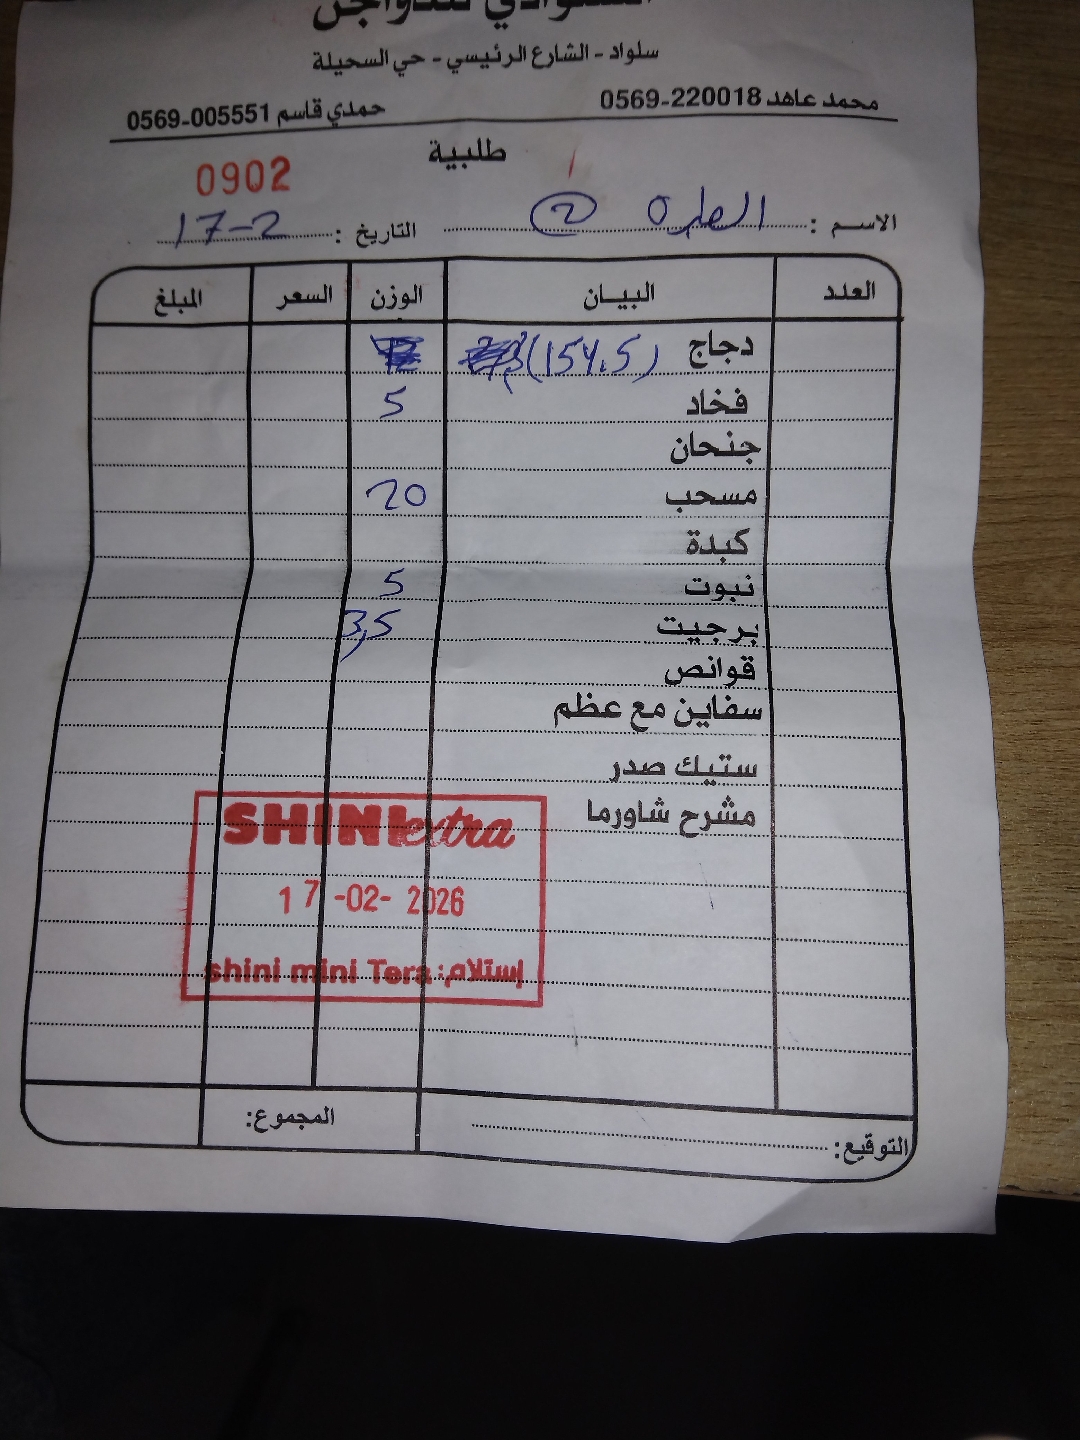 للدواجن
سلواد - الشارع الرئيسي - حي السحيلة
محمد عاهد 0569-220018 حمدي قاسم 0569-005551
طلبية
0902
الاسم : 2 التاريخ : 17-2
العدد البيان الوزن السعر المبلغ
دجاج (154.5)
فخاد 5
جنحان
مسحب 20
كبدة
نبوت 5
برجيت 3,5
قوانص
سفاين مع عظم
ستيك صدر
مشرح شاورما
SHINI extra
17-02-2026
إستلام: shini mini Tera
المجموع:
التوقيع: